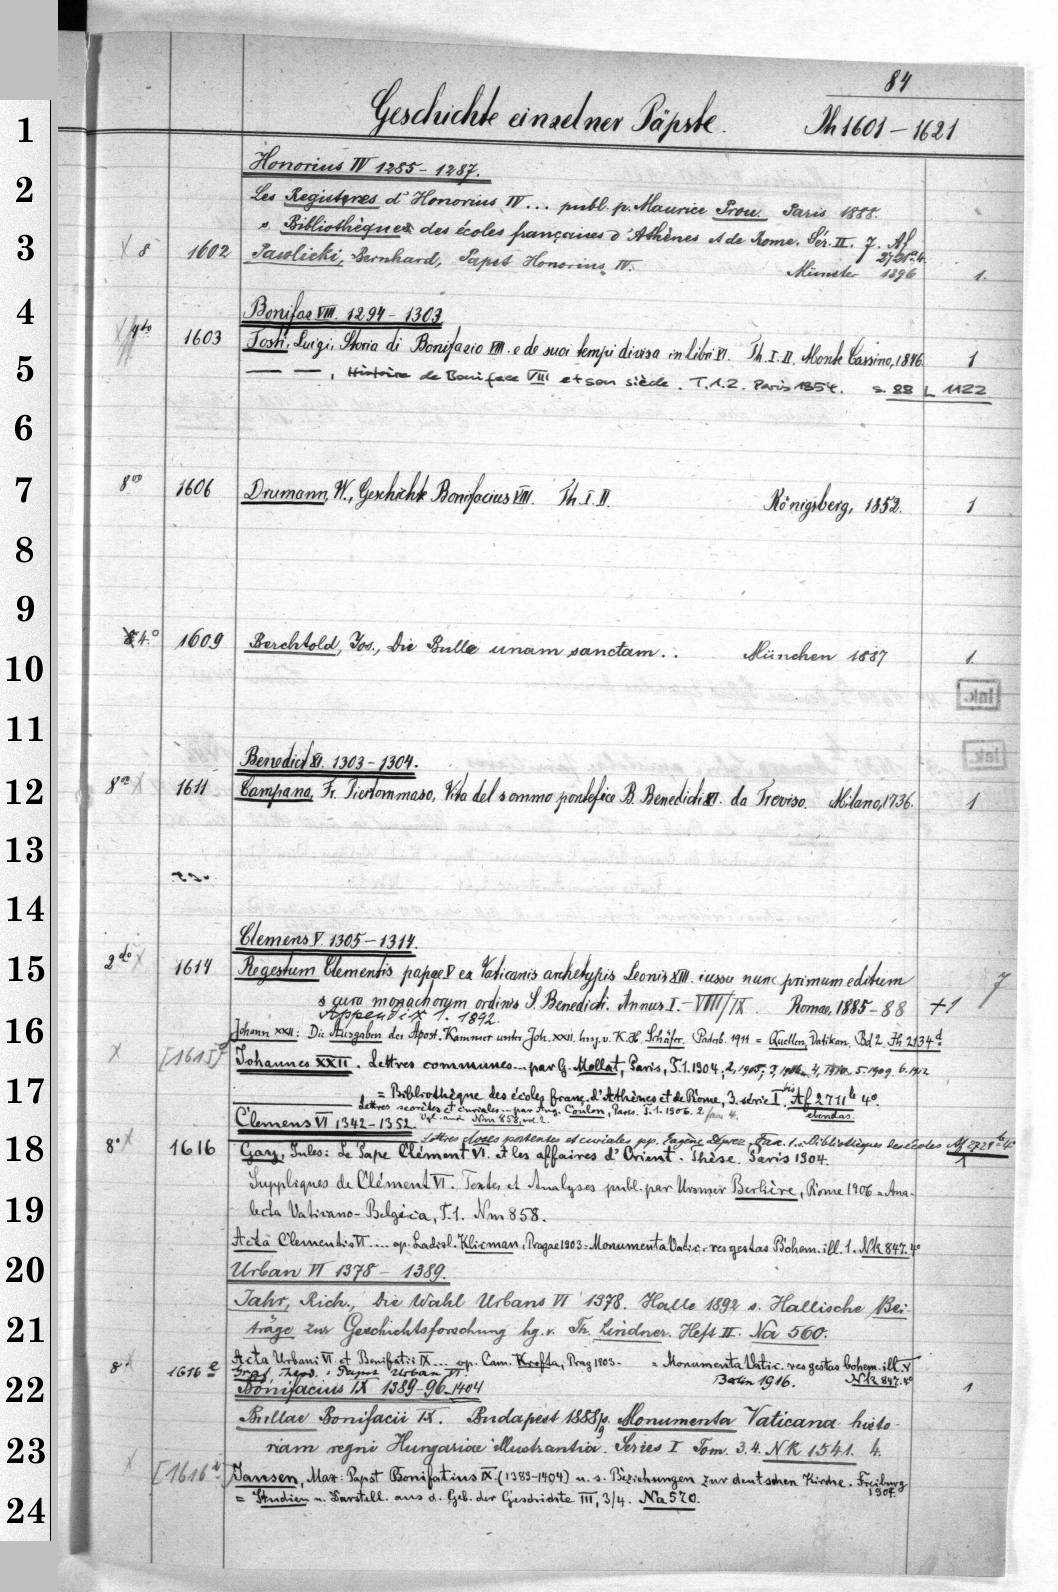 84
Geschichte einzelner Päpste. Th 1601 – 1621
1
Honorius IV 1285 – 1287.
2
Les Registres d'Honorius IV... publ. p. Maurice Prou. Paris 1888.
s. Bibliothèque des écoles françaises d'Athènes et de Rome. Sér. II. 7. Af
3
X 8 1602 Pawlicki, Bernhard, Papst Honorius IV. Münster 1896 1.
4
Bonifaz VIII. 1294 – 1303
4to 1603 Tosti, Luigi, Storia di Bonifazio VIII. e de suoi tempi divisa in libri VI. Th. I. II. Monte Cassino, 1846. 1
5
— — , Histoire de Boniface VIII et son siècle. T. 1. 2. Paris 1854. s. 88 L 1122
6
7
8vo 1606 Drumann, W., Geschichte Bonifacius VIII. Th. I. II. Königsberg, 1852. 1
8
9
4.° 1609 Berchtold, Jos., Die Bulle unam sanctam.. München 1887 1.
10
Ink.
11
Ink.
Benedict XI. 1303 – 1304.
12
8vo X 1611 Campana, Fr. Piertommaso, Vita del sommo pontefice B. Benedicti XI. da Treviso. Milano, 1736. 1
13
14
Clemens V. 1305 – 1314.
15
2do X 1614 Regestum Clementis papae V ex Vaticanis archetypis Leonis XIII. iussu nunc primum editum 7
s cura monachorum ordinis S. Benedicti. Annus I. – VIII/IX. Romae, 1885 – 88 + 1
Appendix 1. 1892.
16
Johann XXII: Die Ausgaben der Apost. Kammer unter Joh. XXII. hrsg. v. K. H. Schäfer. Paderb. 1911 = Quellen, Vatikan. Bd 2. Fh 2134 d
X [1615] Johannes XXII. Lettres communes... par G. Mollat, Paris, T. 1. 1904, 2, 1905, 3, 4, 1910. 5. 1909. 6. 1912
17
= Bibliothèque des écoles franç. d'Athènes et de Rome, 3. série I bis Af 2711 b 4°.
Lettres secrètes et curiales... par Aug. Coulon, Paris. T. 1. 1906. 2 4. ebendas.
Clemens VI 1342 – 1352 Nm 858,
Lettres closes patentes et curiales pp. Eugène Déprez, 1. = Bibliothèque des écoles Af 4°
18
8° X 1616 Gay, Jules: Le Pape Clément VI. et les affaires d'Orient. Thèse. Paris 1904. 1
Suppliques de Clément VI. Textes et Analyses publ. par Ursmer Berlière, Rome 1906 = Ana-
19
lecta Vaticano-Belgica, T. 1. Nm 858.
Acta Clementis VI.... op. Ladisl. Klicman, Pragae 1903 = Monumenta Vatic. res gestas Bohem. ill. 1. Nk 847. 4°
20
Urban VI 1378 – 1389.
Jahr, Rich., Die Wahl Urbans VI 1378. Halle 1892 s. Hallische Bei-
21
träge zur Geschichtsforschung hg. v. Th. Lindner. Heft II. Na 560.
Acta Urbani VI. et Bonifatii IX... op. Cam. Krofta, Prag 1903 – = Monumenta Vatic. res gestas bohem. ill. V
8° X 1616 a Graf, Theod.: Papst Urban VI. Berlin 1916. Nk 847. 4° 1
22
Bonifacius IX 1389 – 96 1404
Bullae Bonifacii IX. Budapest 1888/9 s. Monumenta Vaticana histo-
23
riam regni Hungariae illustrantia. Series I Tom. 3. 4. NK 1541. 4.
X [1616 b] Jansen, Max: Papst Bonifatius IX. (1389–1404) u. s. Beziehungen zur deutschen Kirche. Freiburg 1904.
24
= Studien u. Darstell. aus d. Geb. der Geschichte III, 3/4. Na 570.